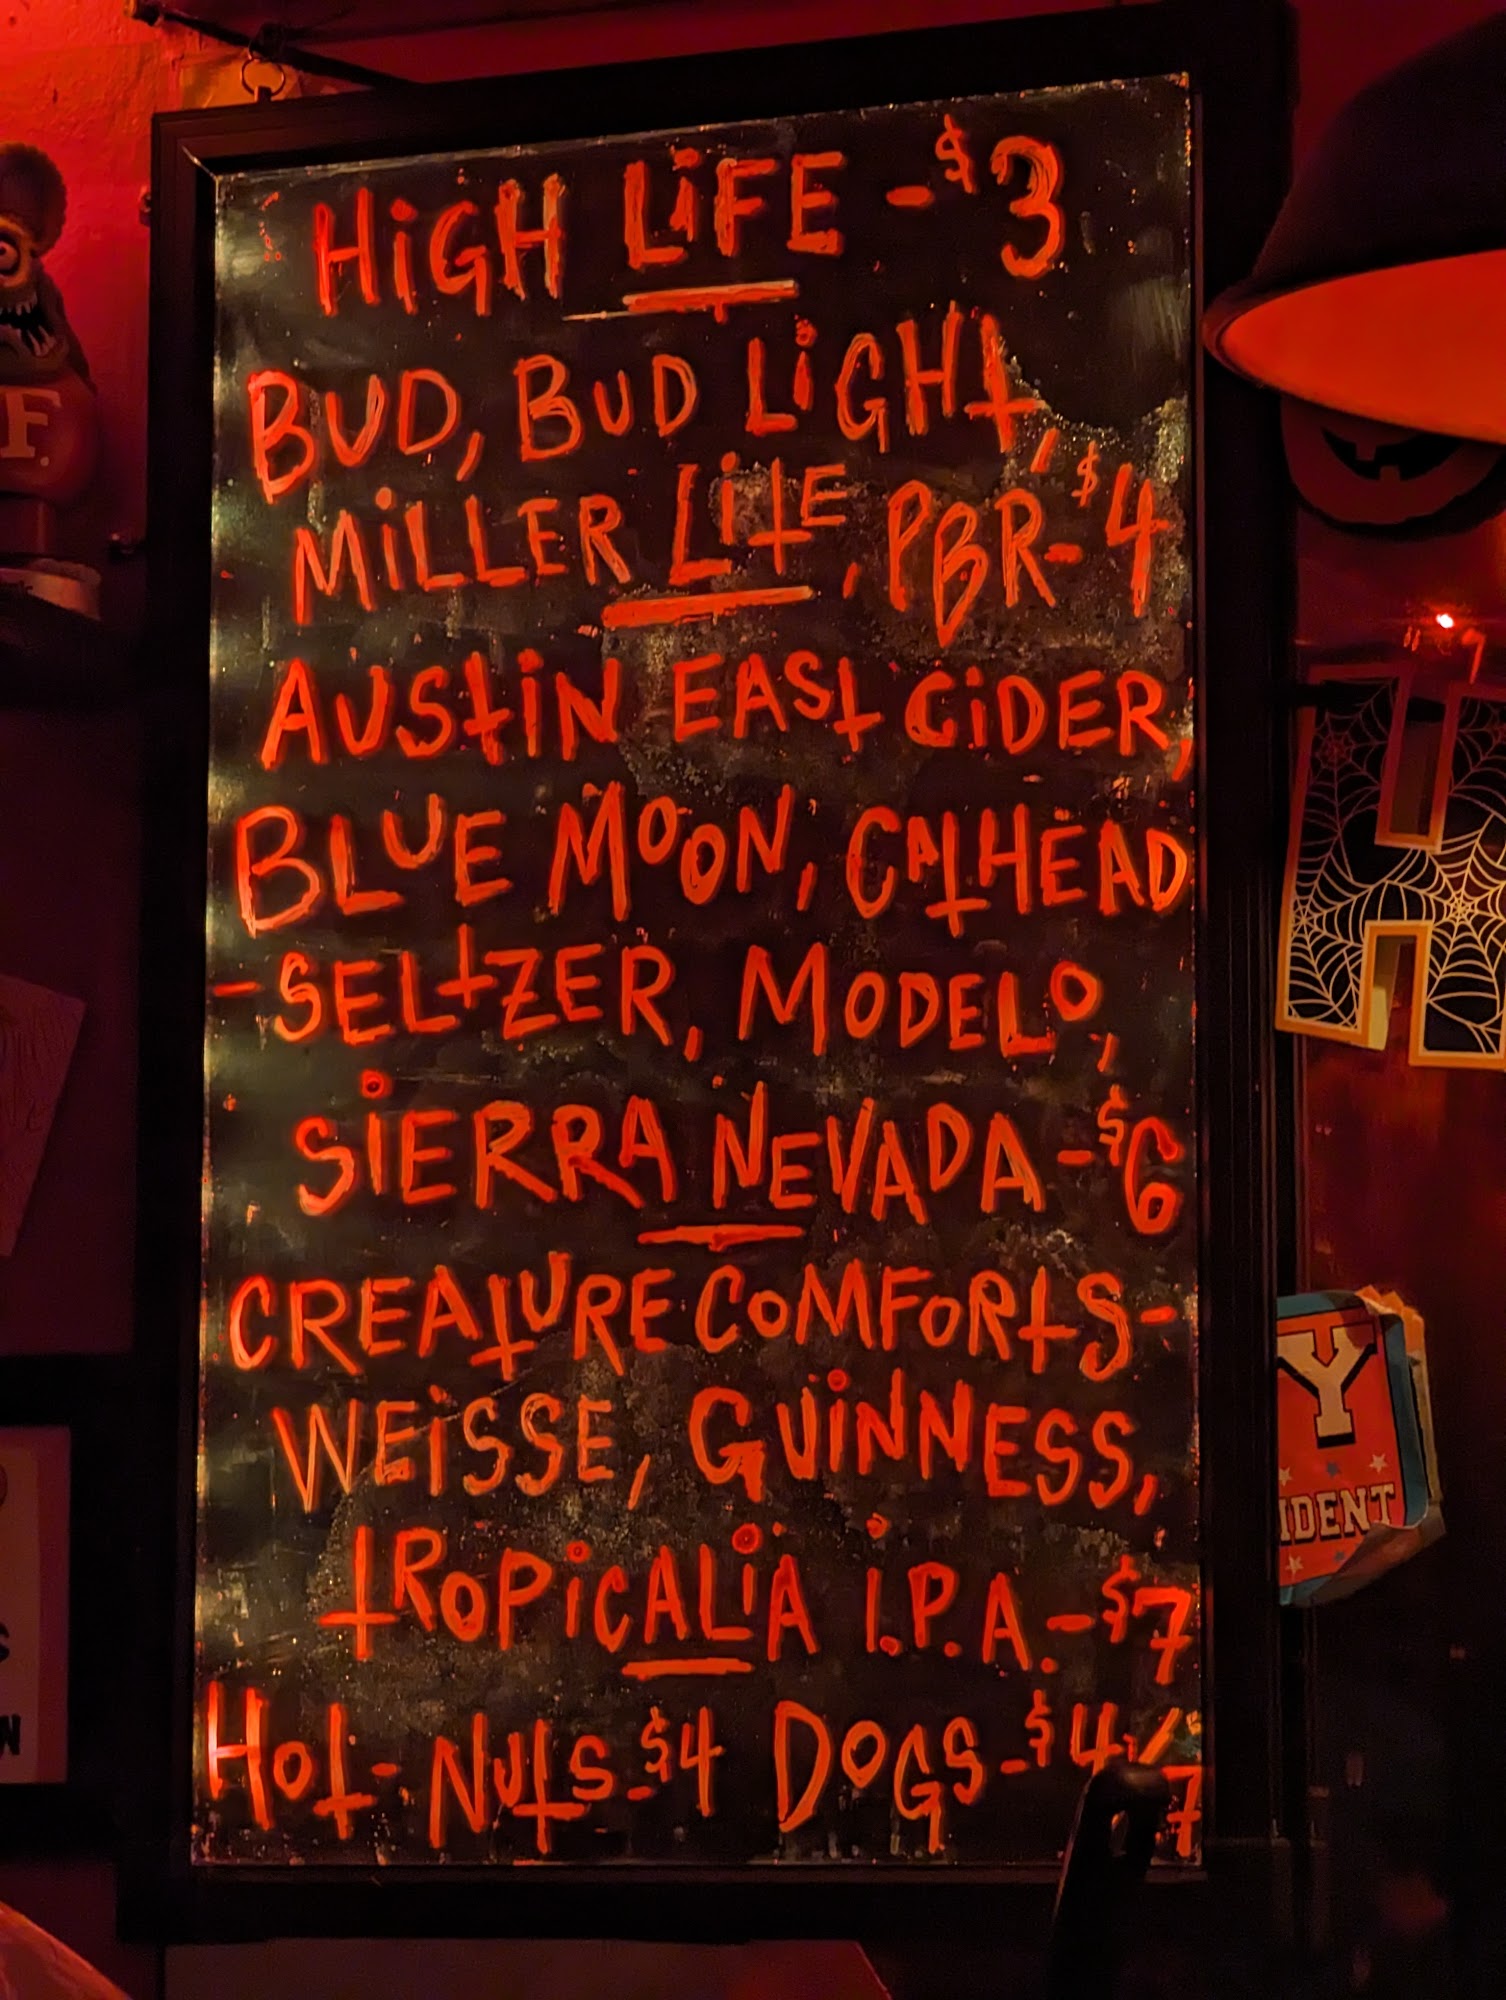 HiGH LiFE - $3
BUD, BUD LiGHt,
MiLLER LitE, PBR- $4
AUStiN EASt CiDER,
BLUE MOON, CAtHEAD
-SELtZER, MODELO,
SiERRA NEVADA - $6
CREAtURE COMFORtS-
WEiSSE, GUiNNESS,
tROPiCALiA i.P.A. - $7
HOt- NUtS - $4 DOGS - $4/
7
F.
H
Y
IDENT
S
N